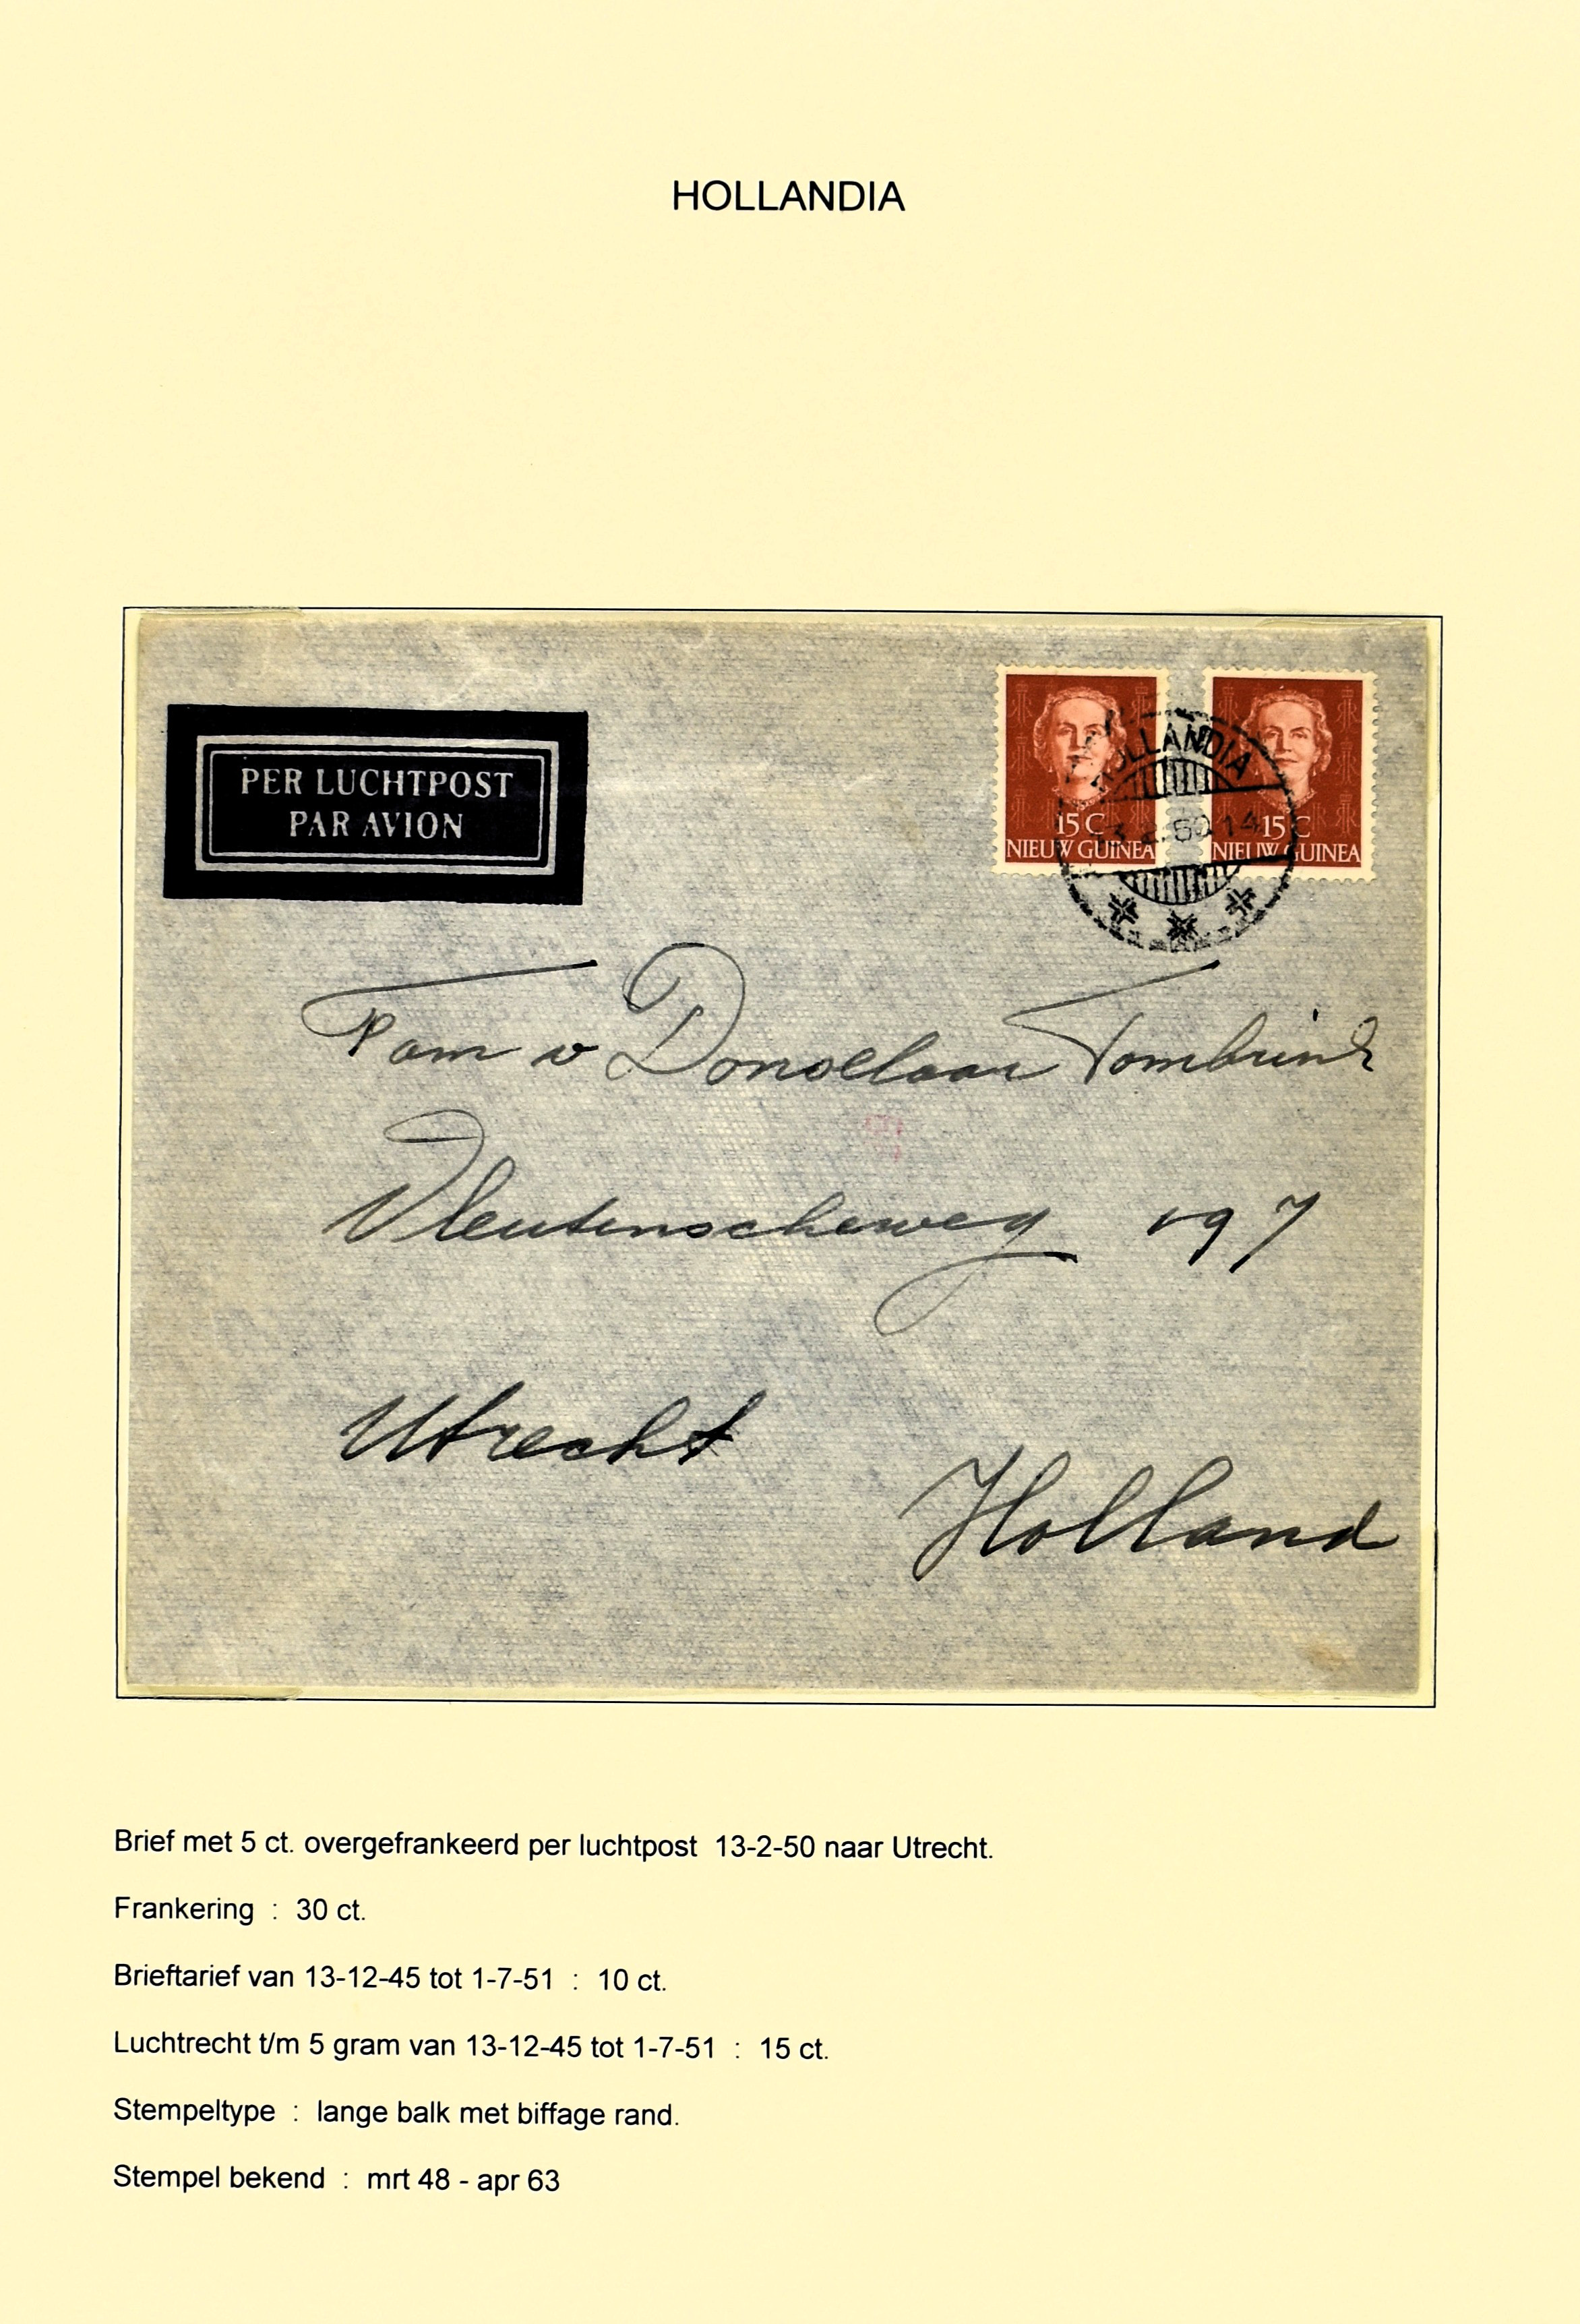 HOLLANDIA
PER LUCHTPOST
PAR AVION
15 C
NIEUW GUINEA
15 C
NIEUW GUINEA
HOLLANDIA
13.2.50.14
Fam v Donselaar Tombrink
Vleutenscheweg 197
Utrecht
Holland
Brief met 5 ct. overgefrankeerd per luchtpost 13-2-50 naar Utrecht.
Frankering : 30 ct.
Brieftarief van 13-12-45 tot 1-7-51 : 10 ct.
Luchtrecht t/m 5 gram van 13-12-45 tot 1-7-51 : 15 ct.
Stempeltype : lange balk met biffage rand.
Stempel bekend : mrt 48 - apr 63